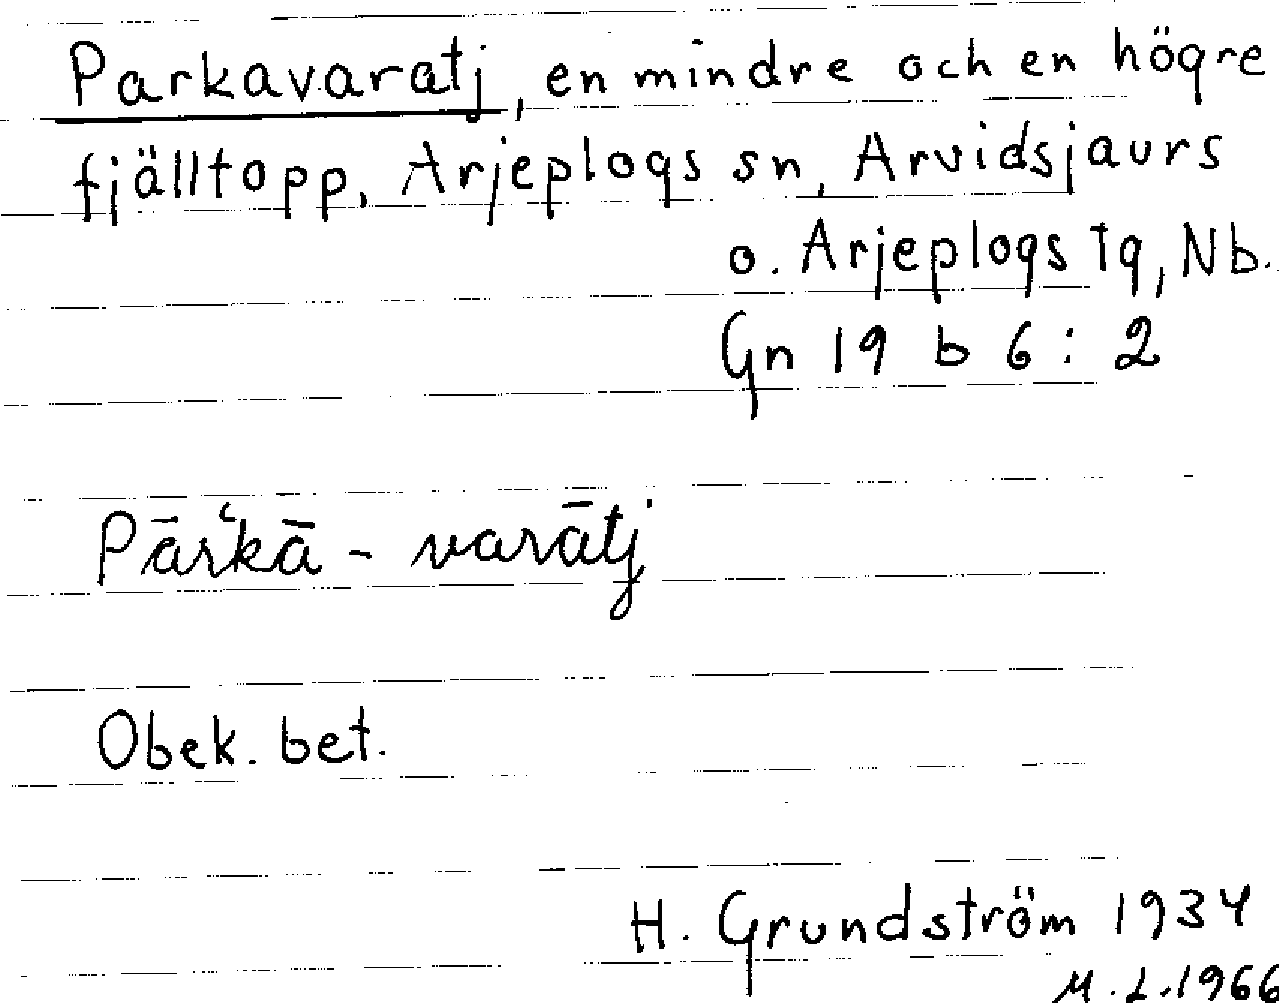 Parkavaratj, en mindre och en högre
fjälltopp, Arjeplogs sn, Arvidsjaurs
o. Arjeplogs tg, Nb.
Gn 19 b 6 : 2
Pār‘kā - varātj
Obek. bet.
H. Grundström 1934
M.L.1966